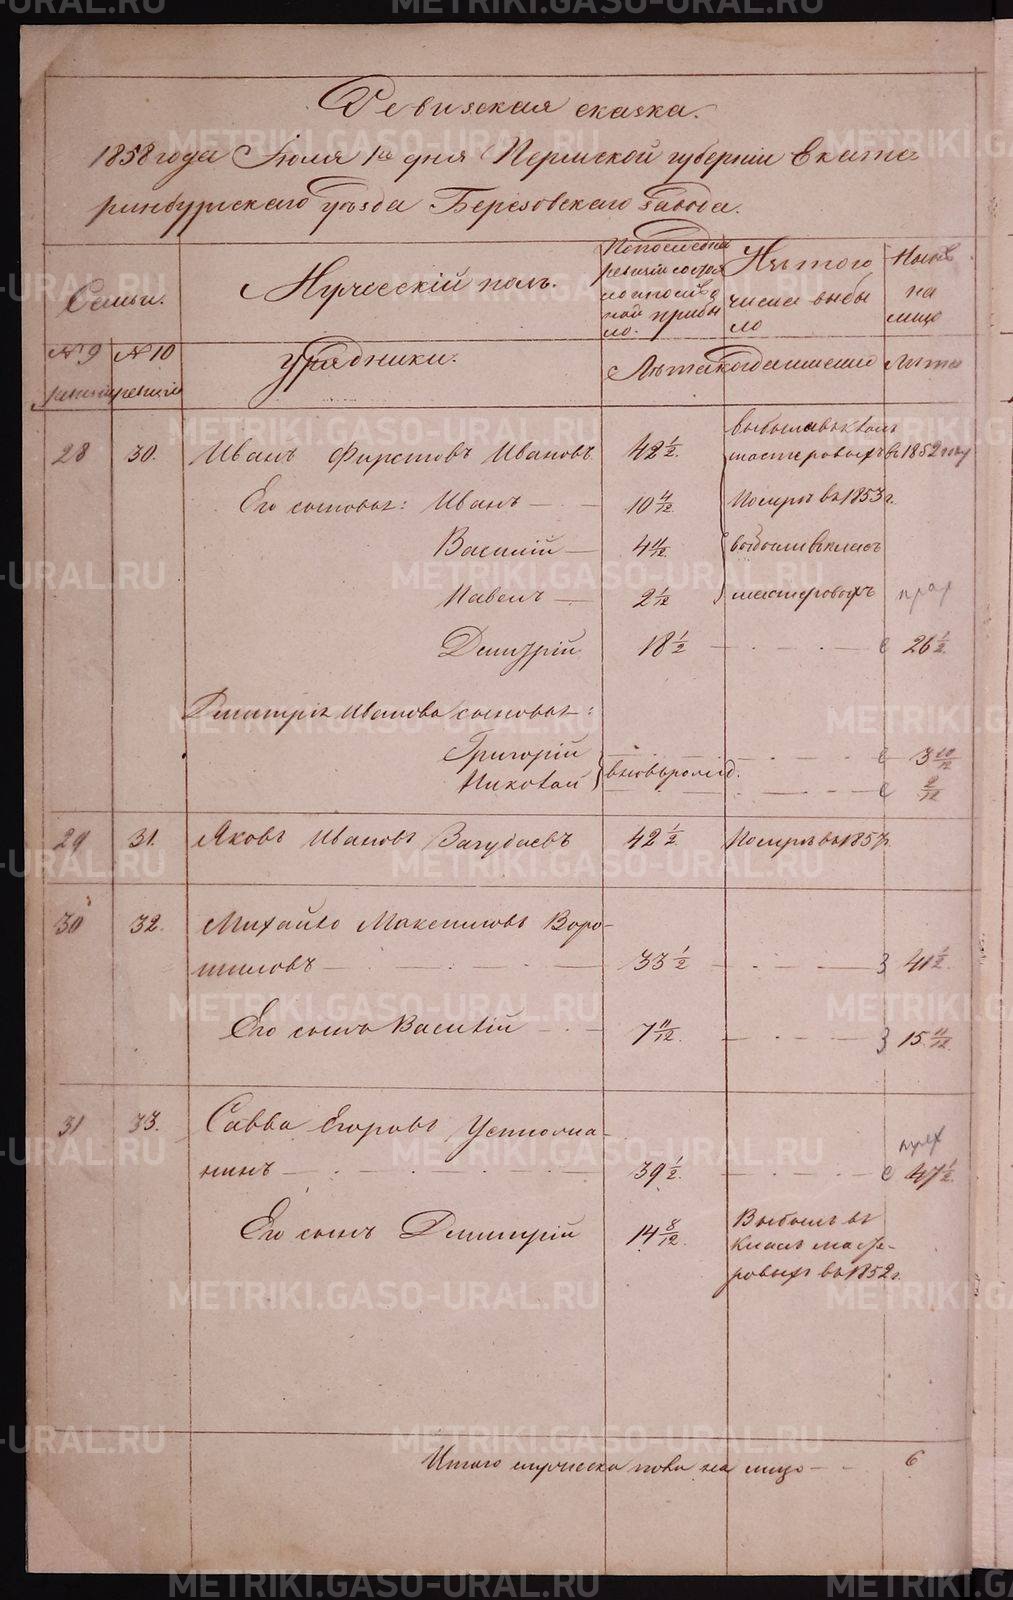 Ревизская сказка.
1858 года Июля 1го дня Пермской губерніи Екате
ринбургскаго уѣзда Березовскаго завода.
Семьи.
Мужескій полъ.
По последней
ревизіи состоя
ло и после о
ной прибы
ло.
Изъ того
числа выбы
ло
Нынѣ
на
лицо
№ 9
ревизіи
№ 10
ревизіи
Урядники.
Лѣта
когда именно
Лѣта
28 30. Иванъ Фирстовъ Ивановъ. 42 1/2.
выбылъ въ класъ
мастеровыхъ въ 1852 году
Его сыновья: Иванъ 10 4/12. Померъ въ 1853 г.
Василій 4 11/12. выбыли въ класъ
Павелъ 2 1/12 мастеровыхъ
Дмитрій 18 1/2 26 1/2.
Дмитрія Иванова сыновья:
Григорій 3 10/12
Николай вновь рожд. 2/12
29 31. Яковъ Ивановъ Загубаевъ 42 1/2. Померъ въ 1857 г.
30 32. Михайло Максимовъ Воро-
шиловъ 33 1/2 З 41 1/2.
Его сынъ Василій 7 11/12. З 15 11/12.
31 33. Савва Егоровъ Устюжа-
нинъ 39 1/2. 47 1/2.
Его сынъ Дмитрій 14 8/12.
Выбылъ въ
класъ масте-
ровыхъ въ 1852 г.
Итого мужеска пола на лицо 6
METRIKI.GASO-URAL.RU